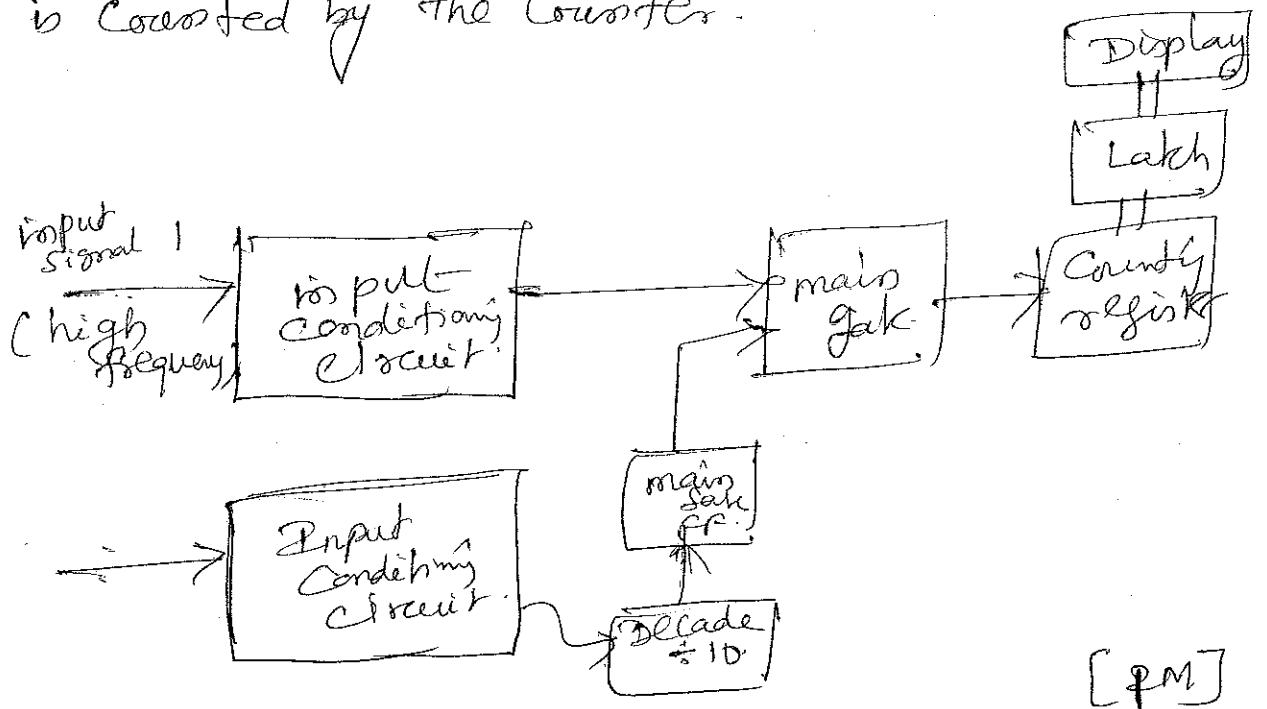 is counted by the counter.
Display
Latch
input
signal 1
(high
frequency)
input
conditioning
circuit.
main
gate
Counting
register
main
gate
FF.
Input
Conditioning
circuit.
Decade
÷10